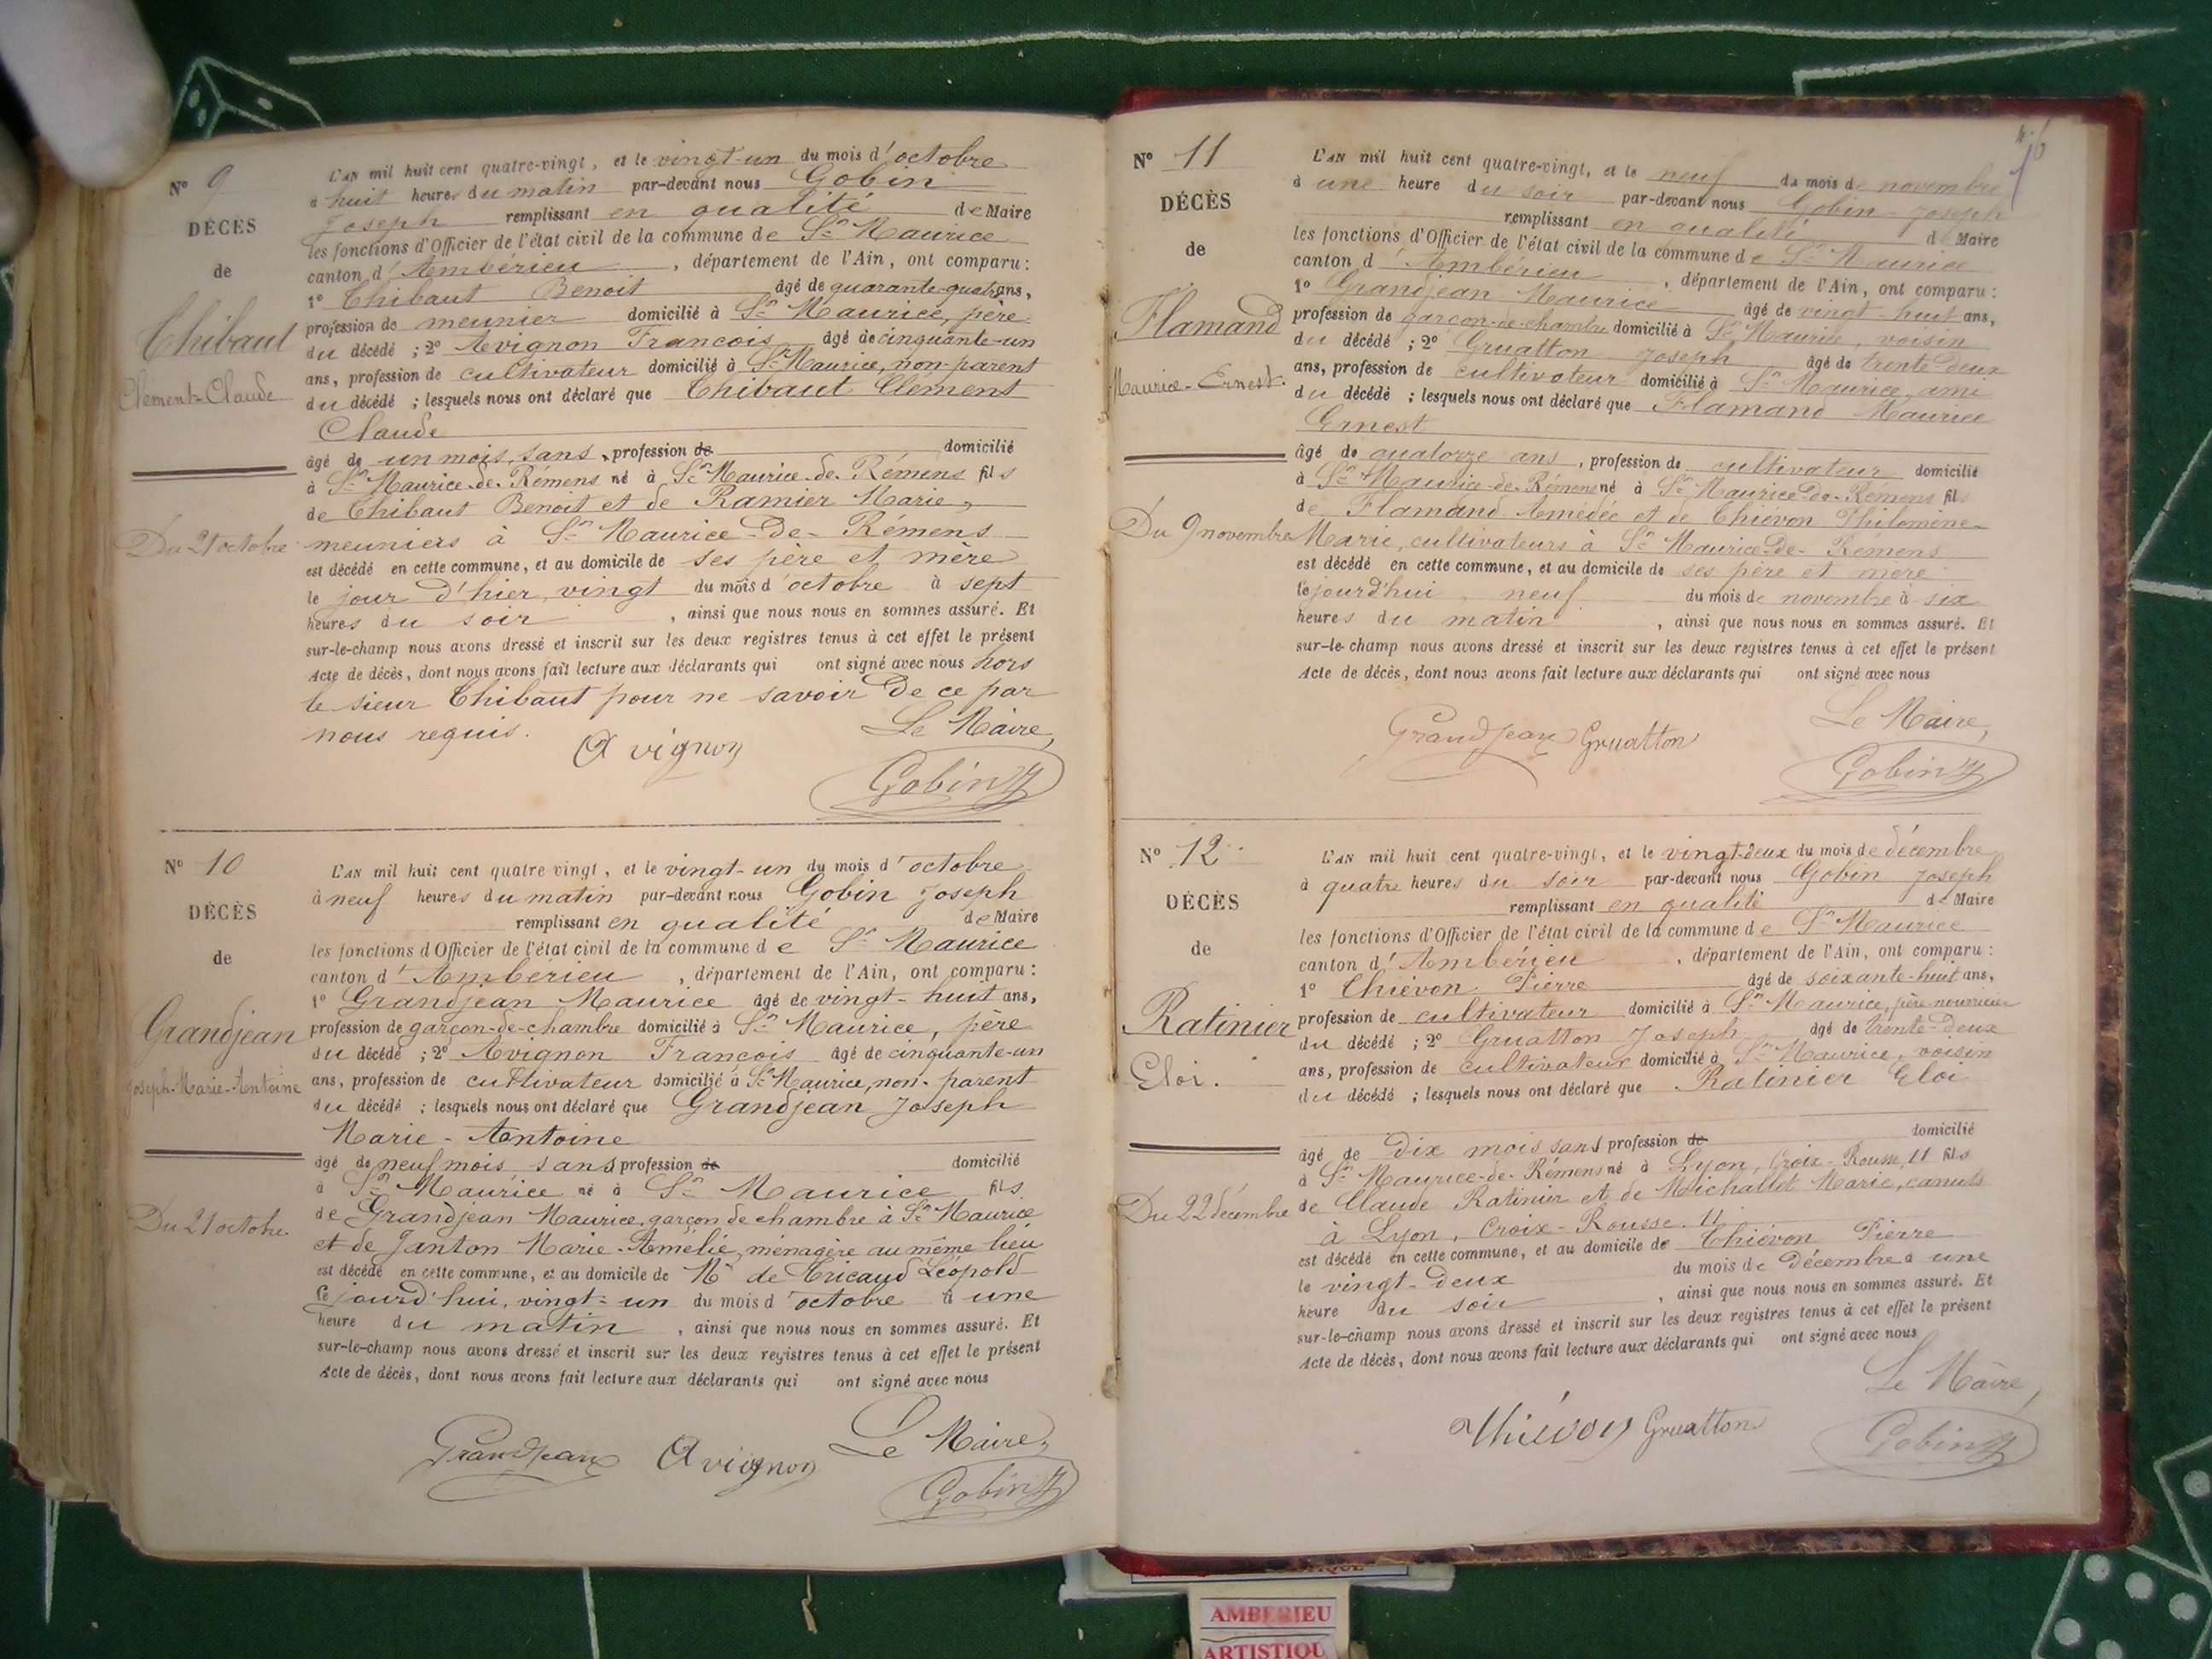 N° 9
DÉCÈS
de
Thibaut
Clément-Claude
Du 21 octobre
L'AN mil huit cent quatre-vingt, et le vingt-un du mois d'octobre
à huit heures du matin par-devant nous Gobin
Joseph remplissant en qualité de Maire
les fonctions d'Officier de l'état civil de la commune de St Maurice
canton d'Ambérieu, département de l'Ain, ont comparu:
1° Thibaut Benoit âgé de quarante-quatre ans,
profession de meunier domicilié à St Maurice, père
du décédé; 2° Avignon François âgé de cinquante-un
ans, profession de cultivateur domicilié à St Maurice, non-parent
du décédé; lesquels nous ont déclaré que Thibaut Clément
Claude
âgé de un mois, sans profession de domicilié
à St Maurice-de-Rémens né à St Maurice-de-Rémens fils
de Thibaut Benoit et de Ramier Marie,
meuniers à St Maurice-De-Rémens
est décédé en cette commune, et au domicile de ses père et mère
le jour d'hier, vingt du mois d'octobre à sept
heures du soir, ainsi que nous nous en sommes assuré. Et
sur-le-champ nous avons dressé et inscrit sur les deux registres tenus à cet effet le présent
Acte de décès, dont nous avons fait lecture aux déclarants qui ont signé avec nous hors
le sieur Thibaut pour ne savoir de ce par
nous requis. Le Maire,
Avignon
Gobin J
N° 10
DÉCÈS
de
Grandjean
Joseph-Marie-Antoine
Du 21 octobre
L'AN mil huit cent quatre vingt, et le vingt-un du mois d'octobre
à neuf heures du matin par-devant nous Gobin Joseph
remplissant en qualité de Maire
les fonctions d'Officier de l'état civil de la commune de St Maurice
canton d'Ambérieu, département de l'Ain, ont comparu:
1° Grandjean Maurice âgé de vingt-huit ans,
profession de garçon-de-chambre domicilié à St Maurice, père
du décédé; 2° Avignon François âgé de cinquante-un
ans, profession de cultivateur domicilié à St Maurice, non-parent
du décédé; lesquels nous ont déclaré que Grandjean Joseph
Marie-Antoine
âgé de neuf mois sans profession de domicilié
à St Maurice né à St Maurice fils
de Grandjean Maurice, garçon de chambre à St Maurice
et de Janton Marie-Amélie, ménagère au même lieu
est décédé en cette commune, et au domicile de Mr de Tricaud Léopold
le jourd'hui, vingt-un du mois d'octobre à une
heure du matin, ainsi que nous nous en sommes assuré. Et
sur-le-champ nous avons dressé et inscrit sur les deux registres tenus à cet effet le présent
Acte de décès, dont nous avons fait lecture aux déclarants qui ont signé avec nous
Le Maire,
Grandjean Avignon
Gobin J
N° 11
DÉCÈS
de
Flamand
Maurice-Ernest.
Du 9 novembre
L'AN mil huit cent quatre-vingt, et le neuf du mois de novembre
à une heure du soir par-devant nous Gobin Joseph
remplissant en qualité de Maire
les fonctions d'Officier de l'état civil de la commune de St Maurice
canton d'Ambérieu, département de l'Ain, ont comparu:
1° Grandjean Maurice âgé de vingt-huit ans,
profession de garçon-de-chambre domicilié à St Maurice, voisin
du décédé; 2° Gruatton Joseph âgé de trente-deux
ans, profession de cultivateur domicilié à St Maurice, ami
du décédé; lesquels nous ont déclaré que Flamand Maurice
Ernest
âgé de quatorze ans, profession de cultivateur domicilié
à St Maurice-de-Rémens né à St Maurice-De-Rémens fils
de Flamand Amédée et de Thiévon Philomène-
Marie, cultivateurs à St Maurice-De-Rémens
est décédé en cette commune, et au domicile de ses père et mère
le jourd'hui, neuf du mois de novembre à six
heures du matin, ainsi que nous nous en sommes assuré. Et
sur-le-champ nous avons dressé et inscrit sur les deux registres tenus à cet effet le présent
Acte de décès, dont nous avons fait lecture aux déclarants qui ont signé avec nous
Le Maire,
Grandjean Gruatton
Gobin J
N° 12
DÉCÈS
de
Ratinier
Eloi.
Du 22 décembre
L'AN mil huit cent quatre-vingt, et le vingt-deux du mois de décembre
à quatre heures du soir par-devant nous Gobin Joseph
remplissant en qualité de Maire
les fonctions d'Officier de l'état civil de la commune de St Maurice
canton d'Ambérieu, département de l'Ain, ont comparu:
1° Thiévon Pierre âgé de soixante-huit ans,
profession de cultivateur domicilié à St Maurice, père-nourricier
du décédé; 2° Gruatton Joseph âgé de trente-deux
ans, profession de cultivateur domicilié à St Maurice, voisin
du décédé; lesquels nous ont déclaré que Ratinier Eloi
âgé de dix mois, sans profession de domicilié
à St Maurice-de-Rémens né à Lyon, Croix-Rousse, 11 fils
de Claude Ratinier et de Michallet Marie, canuts
à Lyon, Croix-Rousse. 11
est décédé en cette commune, et au domicile de Thiévon Pierre
le vingt-deux du mois de décembre à une
heure du soir, ainsi que nous nous en sommes assuré. Et
sur-le-champ nous avons dressé et inscrit sur les deux registres tenus à cet effet le présent
Acte de décès, dont nous avons fait lecture aux déclarants qui ont signé avec nous
Le Maire,
Thiévon Gruatton
Gobin J
AMBERIEU
ARTISTIQU